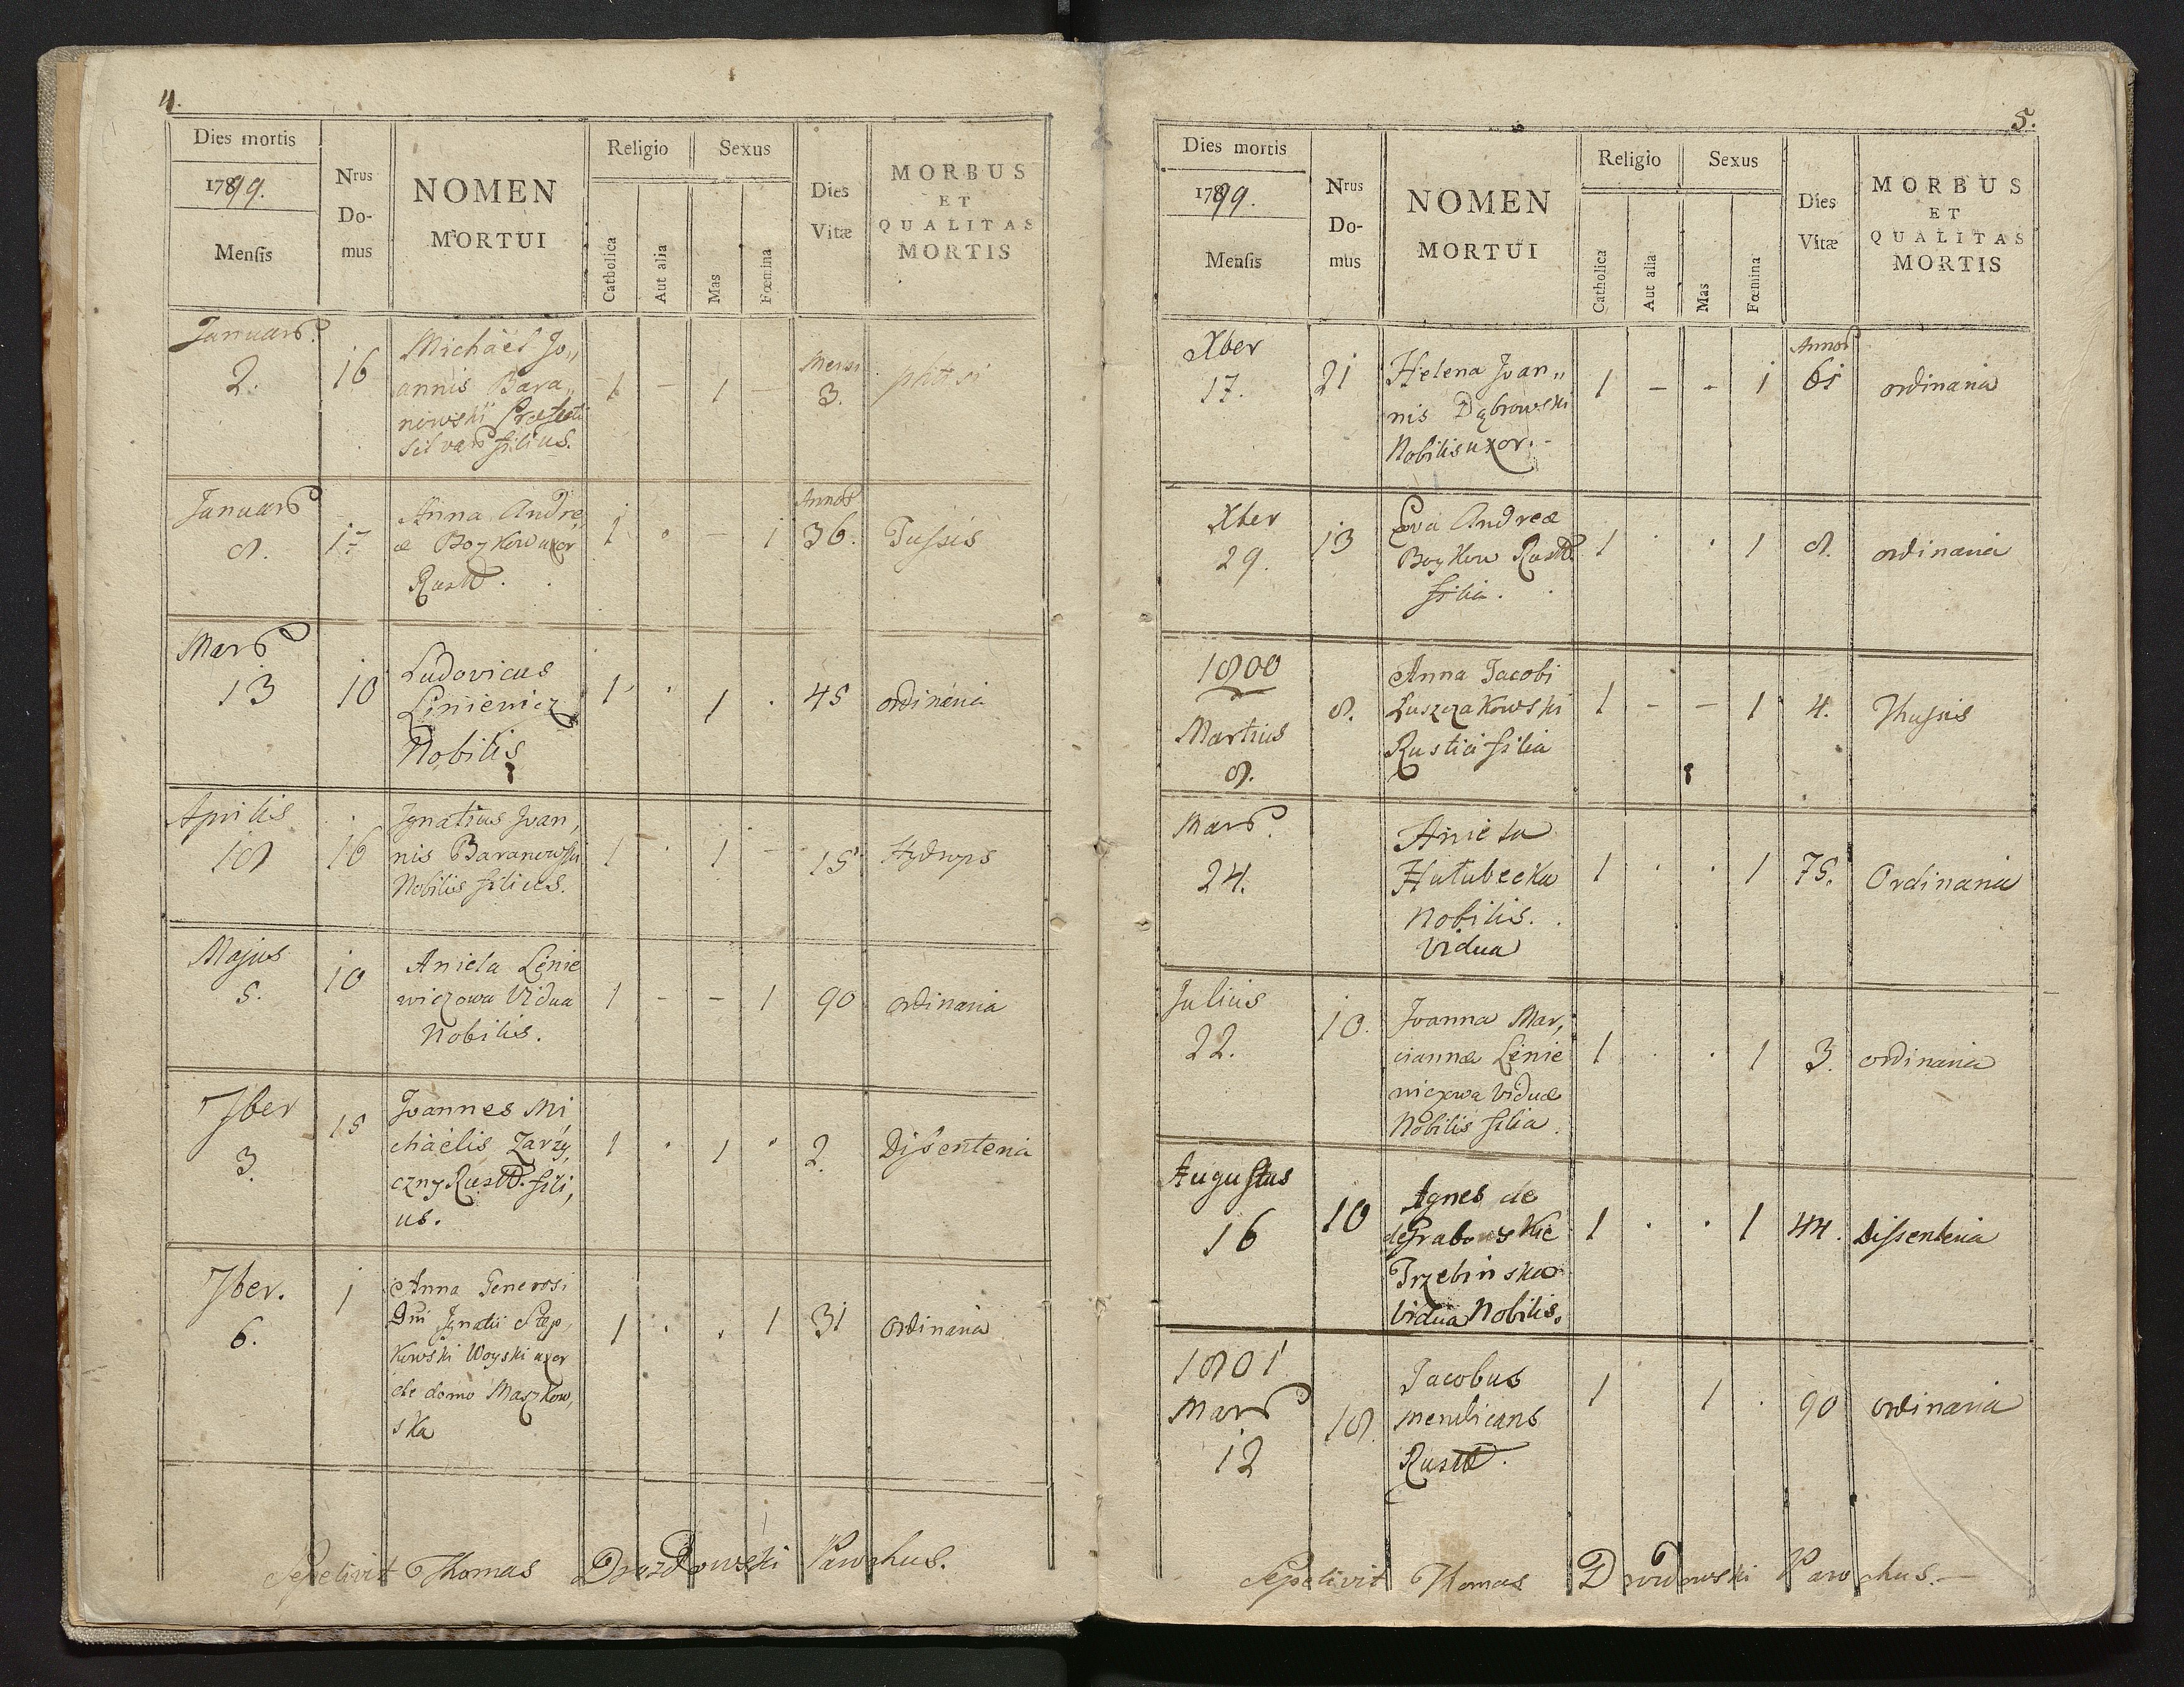 4.
Dies mortis
1799.
Mensis
Nrus
Do-
mus
NOMEN
MORTUI
Religio
Catholica
Aut alia
Sexus
Mas
Fœmina
Dies
Vitæ
MORBUS
ET
QUALITAS
MORTIS
Januarÿ
2.
16
Michaël Jo,,
annis Bara,,
nowski
filius.
1 - 1 -
Mensi
3.
phtisi
Januarÿ
8.
17
Anna Andre,
æ Boykow uxor
Rusti
1 - 1
Annoȓ
36.
Tussis
Marÿ
13
10
Ludovicus
Liniewicz
Nobilis
1 1
45
ordinaria
Aprilis
18
16
Ignatius Joan,
nis Baranowski
Nobilis filius.
1 1 -
15
Hydrops
Majus
5.
10
Aniela Linie
wiczowa Vidua
Nobilis.
1 - - 1
90
ordinaria
7ber
3.
15
Joannes Mi
chaëlis Zarzy,
czny Rusti. fili,
us.
1 1
2.
Dissenteria
7ber.
6.
1
Anna Generosi
Dni Ignatii Stęp,
kowski Woyski uxor
de domo Maszkow,
ska
1 1
31
ordinaria
Sepelivit Thomas Drozdowski Parochus.
5.
Dies mortis
1799.
Mensis
Nrus
Do-
mus
NOMEN
MORTUI
Religio
Catholica
Aut alia
Sexus
Mas
Fœmina
Dies
Vitæ
MORBUS
ET
QUALITAS
MORTIS
Xber
17.
21
Helena Joan,,
nis Dąbrowski
Nobilis uxor.
1 - - 1
Annoȓ
61
ordinaria
Xber
29.
13
Eva Andreæ
Boykow Rusti
filia.
1 1
8.
ordinaria
1800
Martius
8.
8.
Anna Jacobi
Łuszczakowski
Rustici filia
1 - - 1
4.
Thussis
Marÿ.
24.
Aniela
Hułubecka
Nobilis.
Vidua
1 1
75.
Ordinaria
Julius
22.
10.
Joanna Mar,
cianna Linie
wiczowa Viduæ
Nobilis filia.
1 1
3.
ordinaria
Augustus
16
10
Agnes de
de Grabowskie
Trzebinska
Vidua Nobilis.
1 1
44.
Dissenteria
1801
Marÿ
12
18.
Jacobus
mendicans
Rusti.
1 1
90
ordinaria
Sepelivit Thomas Drozdowski Parochus.